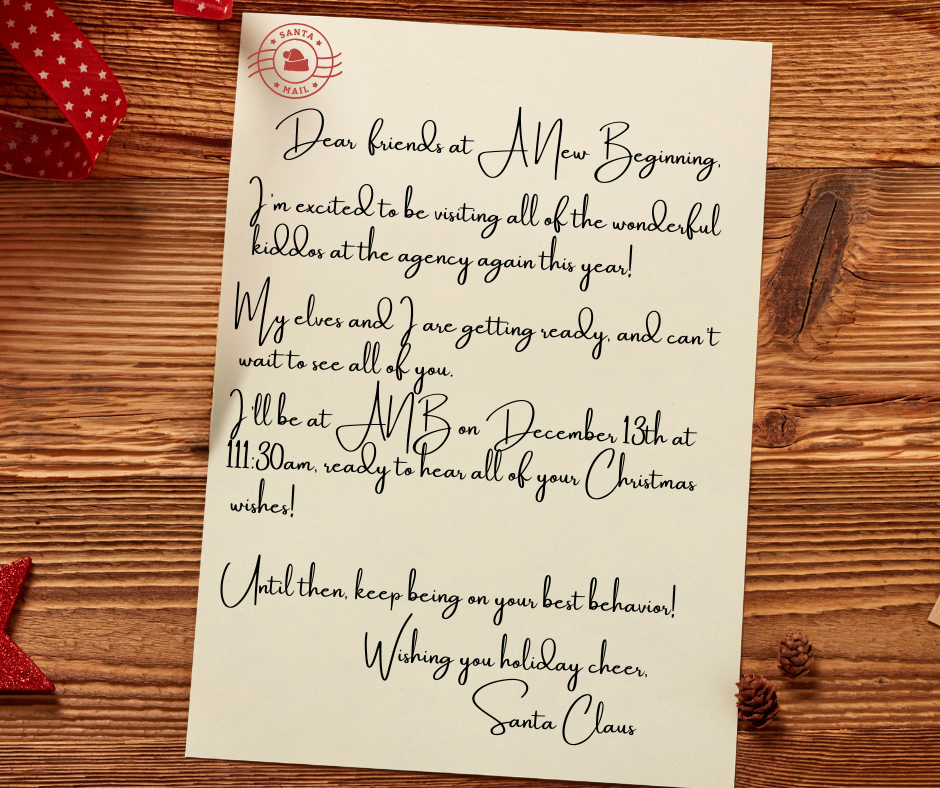 SANTA
MAIL
Dear friends at A New Beginning,
I'm excited to be visiting all of the wonderful
kiddos at the agency again this year!
My elves and I are getting ready, and can't
wait to see all of you.
I'll be at ANB on December 13th at
111:30am, ready to hear all of your Christmas
wishes!
Until then, keep being on your best behavior!
Wishing you holiday cheer,
Santa Claus